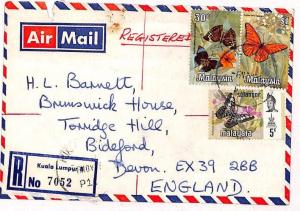 Air Mail
REGISTERED
30¢
Malaysia
Malaysia
H. L. Barnett,
Brunswick House,
Torridge Hill,
Bideford,
Devon. EX39 2BB
ENGLAND.
malaysia
5¢
R
Kuala Lumpur
No 7052